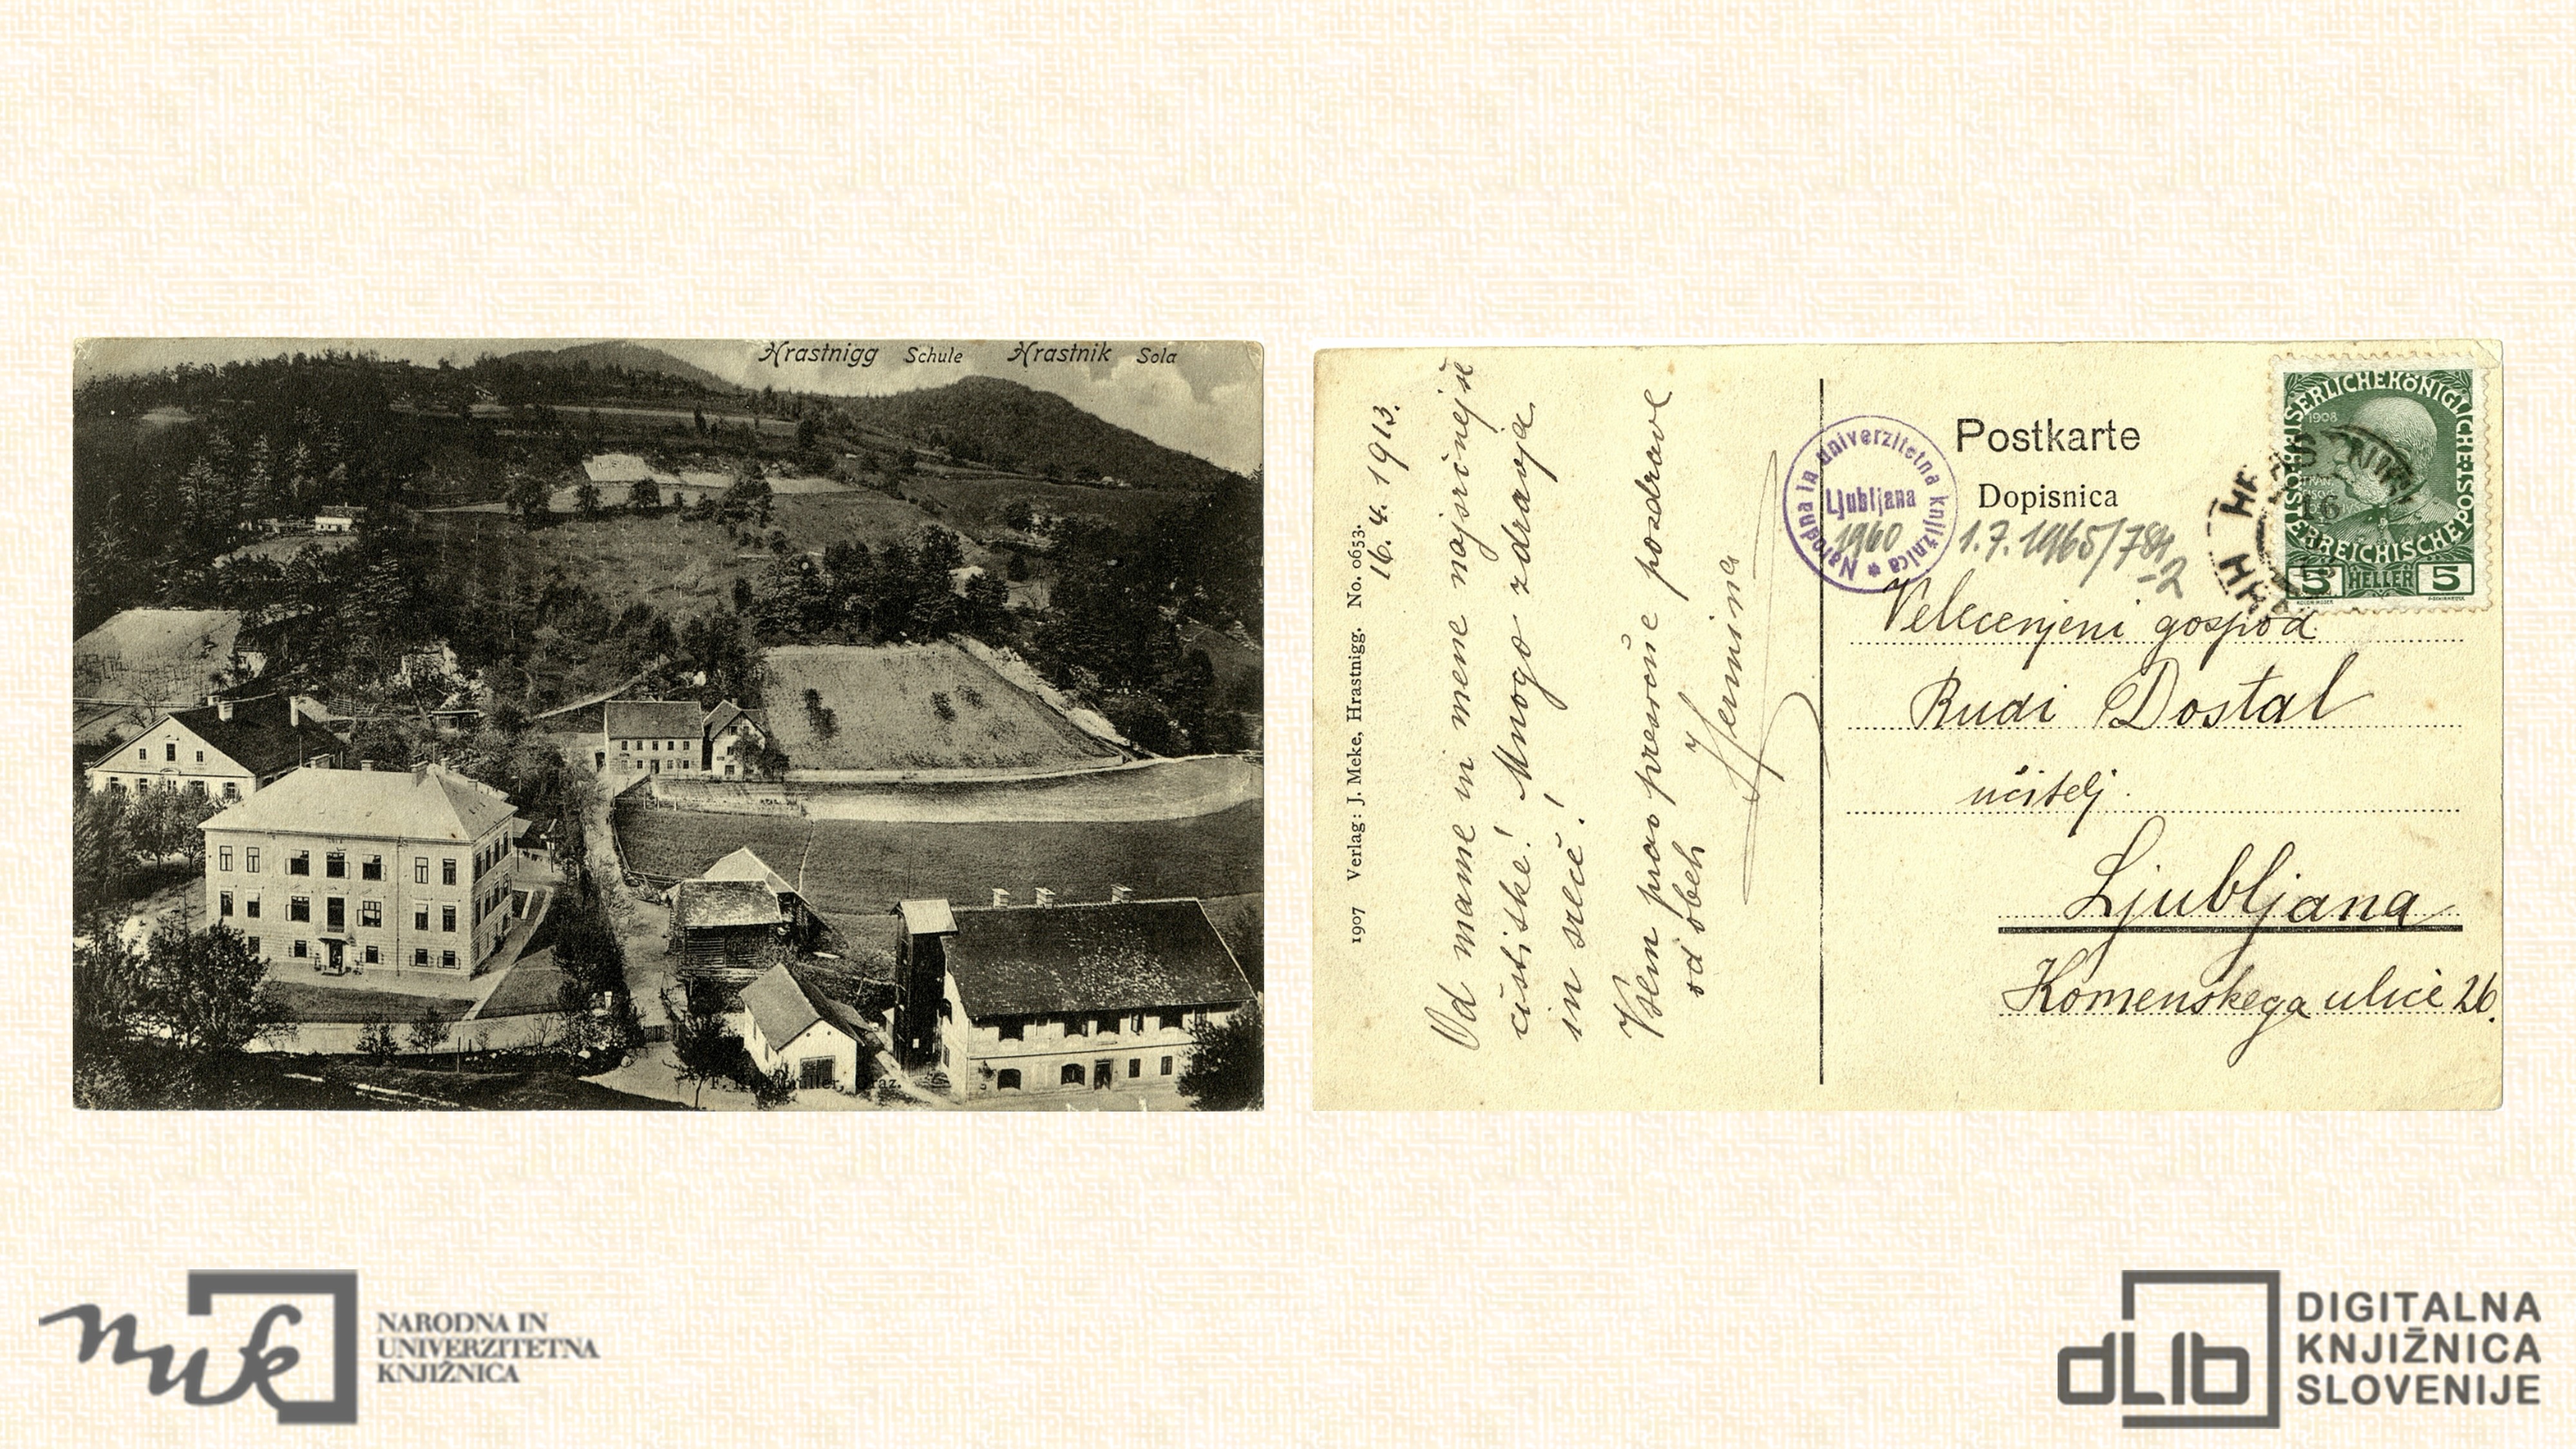 Hrastnigg Schule Hrastnik Sola
Graz.
1907 Verlag: J. Meke, Hrastnigg. No. 0653.
16. 4. 1913.
Od mame in mene najsrčnejše
čestitke! Mnogo zdravja
in sreče!
Vsem prav presrčne pozdrave
od obeh
Hermina
Postkarte
Dopisnica
Narodna in univerzitetna knjižnica
Ljubljana
1960
1.7.1965/784
-2
KAISERLICHE KÖNIGLICHE ÖSTERREICHISCHE POST
1908
5 HELLER 5
16
Velecenjeni gospod
Rudi Dostal
učitelj
Ljubljana
Komenskega ulice 26.
nuk
NARODNA IN
UNIVERZITETNA
KNJIŽNICA
dLib
DIGITALNA
KNJIŽNICA
SLOVENIJE